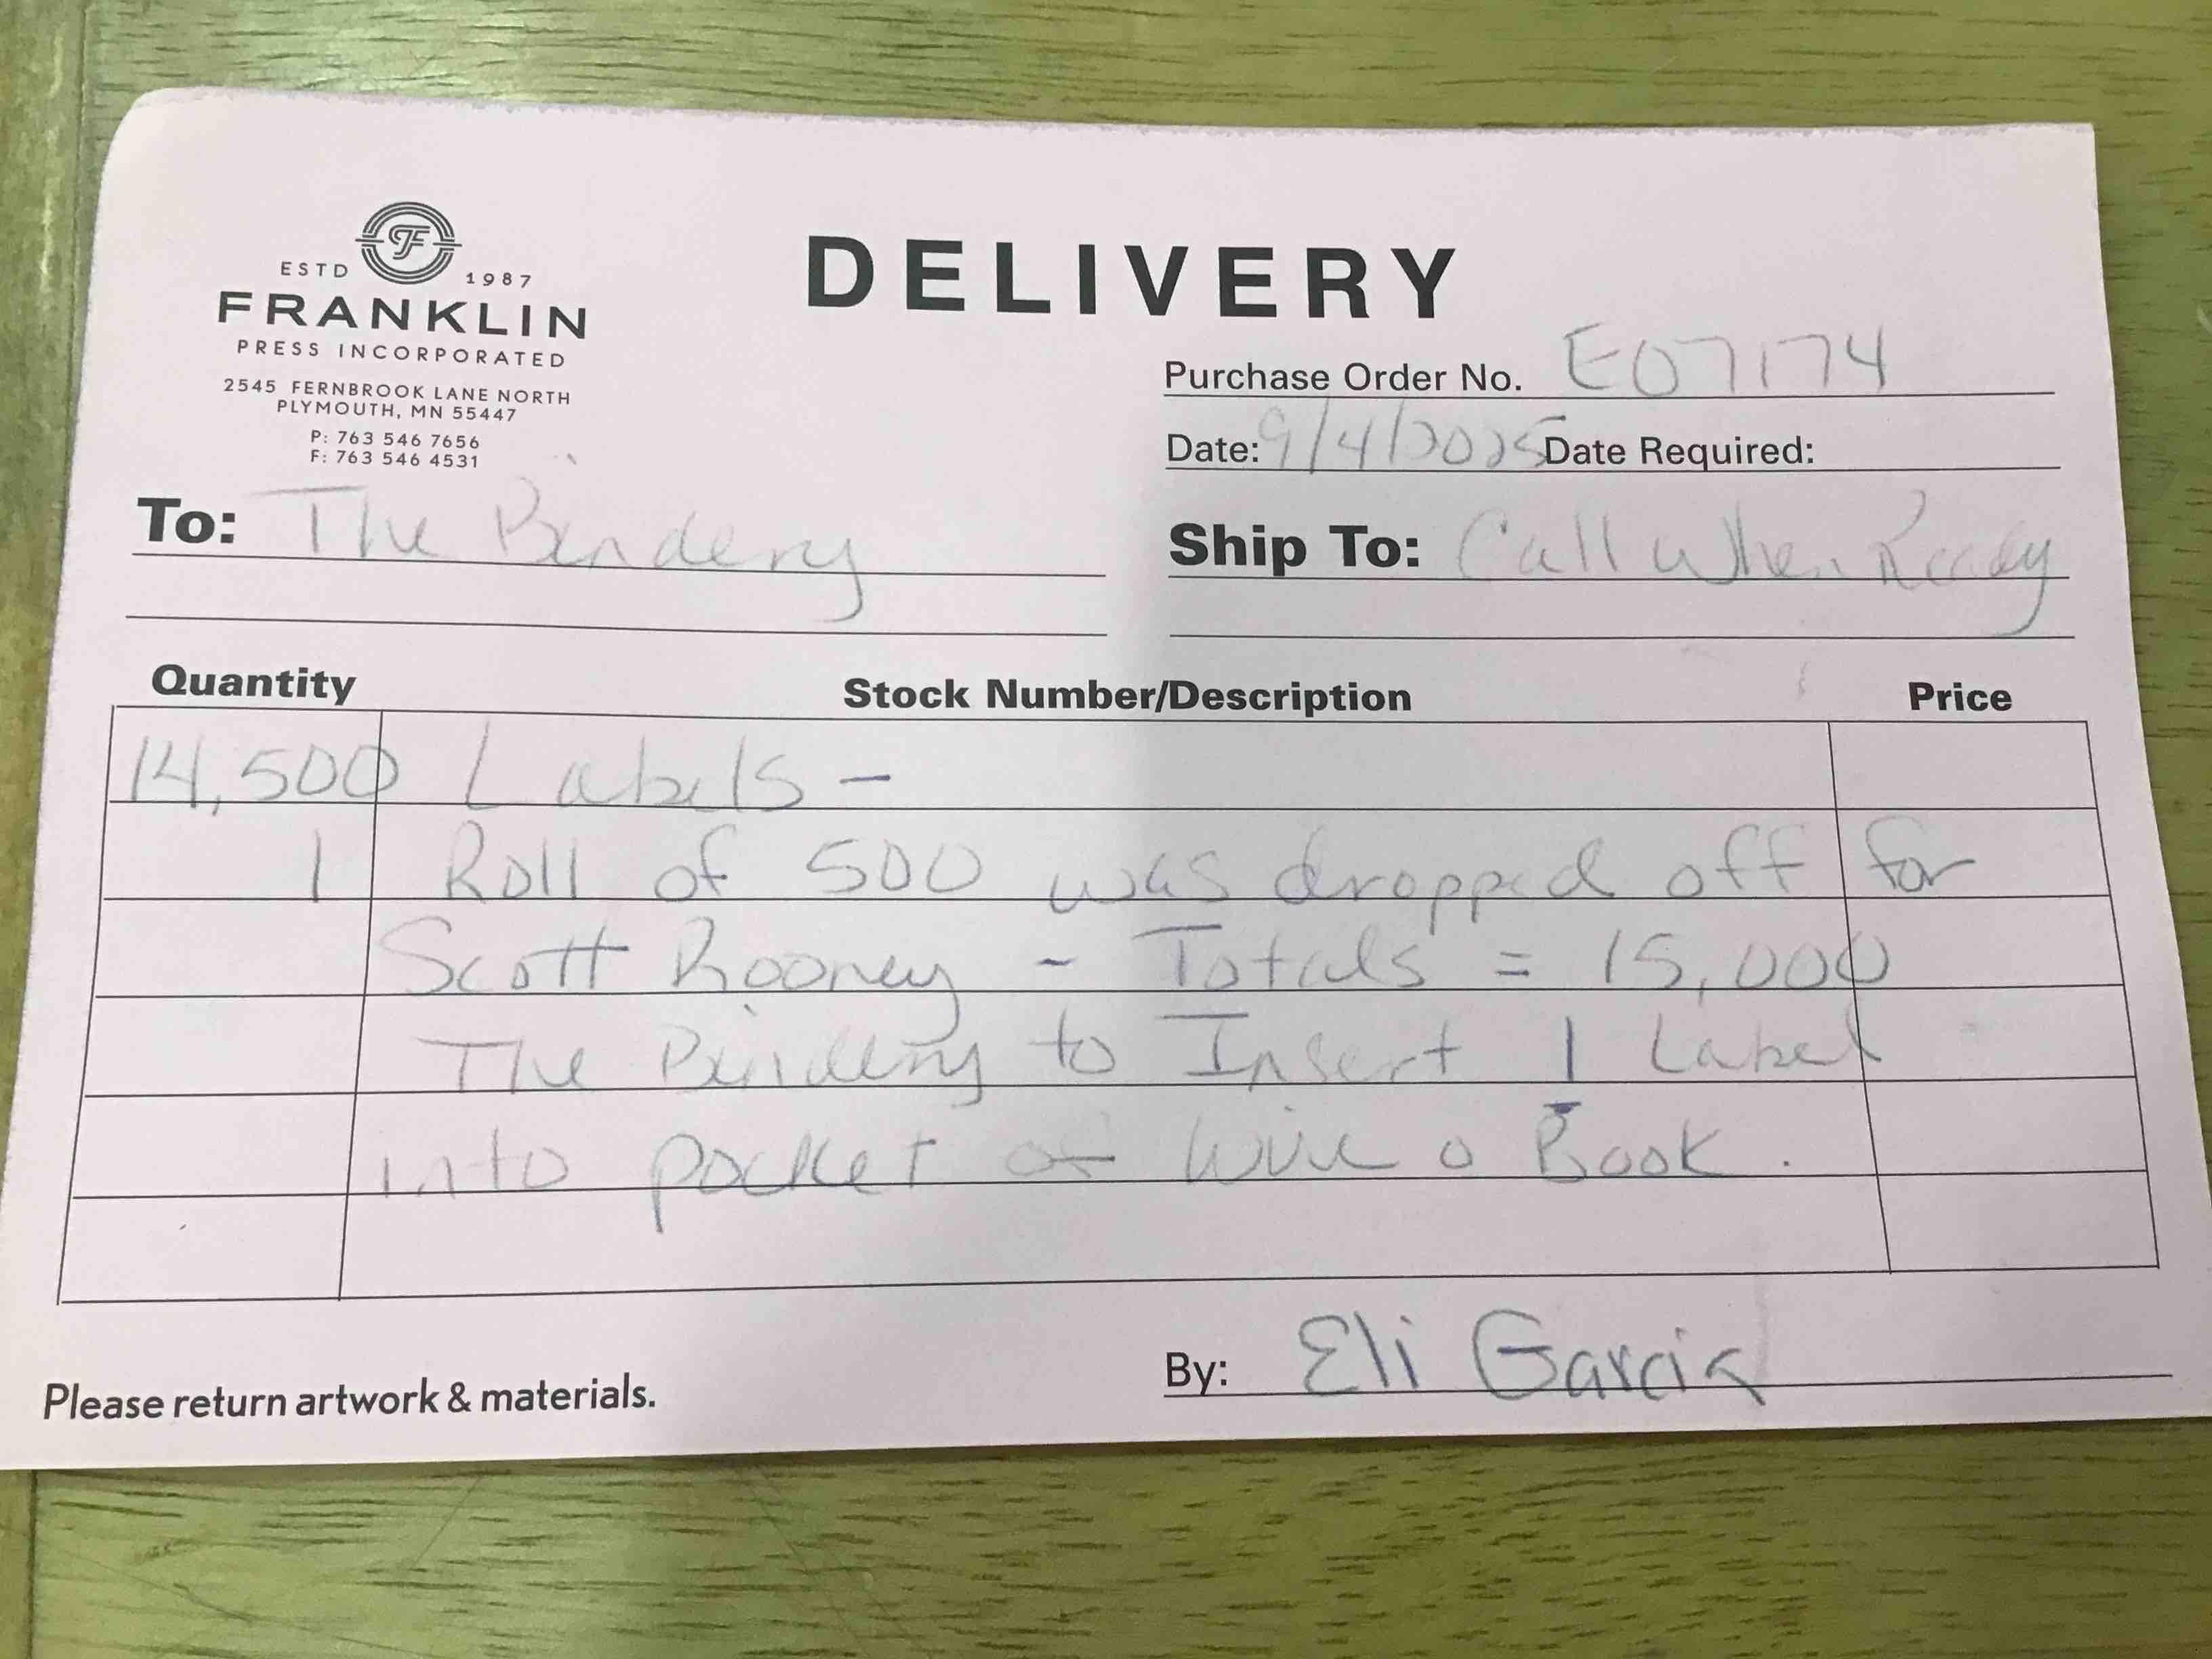 ESTD 1987
FRANKLIN
PRESS INCORPORATED
2545 FERNBROOK LANE NORTH
PLYMOUTH, MN 55447
P: 763 546 7656
F: 763 546 4531
DELIVERY
Purchase Order No. E07174
Date: 9/4/2025 Date Required:
To: The Bindery
Ship To: Call When Ready
Quantity Stock Number/Description Price
14,500 Labels -
1 Roll of 500 was dropped off for
Scott Rooney - Totals = 15,000
The Bindery to Insert 1 Label
into pocket of Wire o Book.
Please return artwork & materials.
By: Eli Garcia